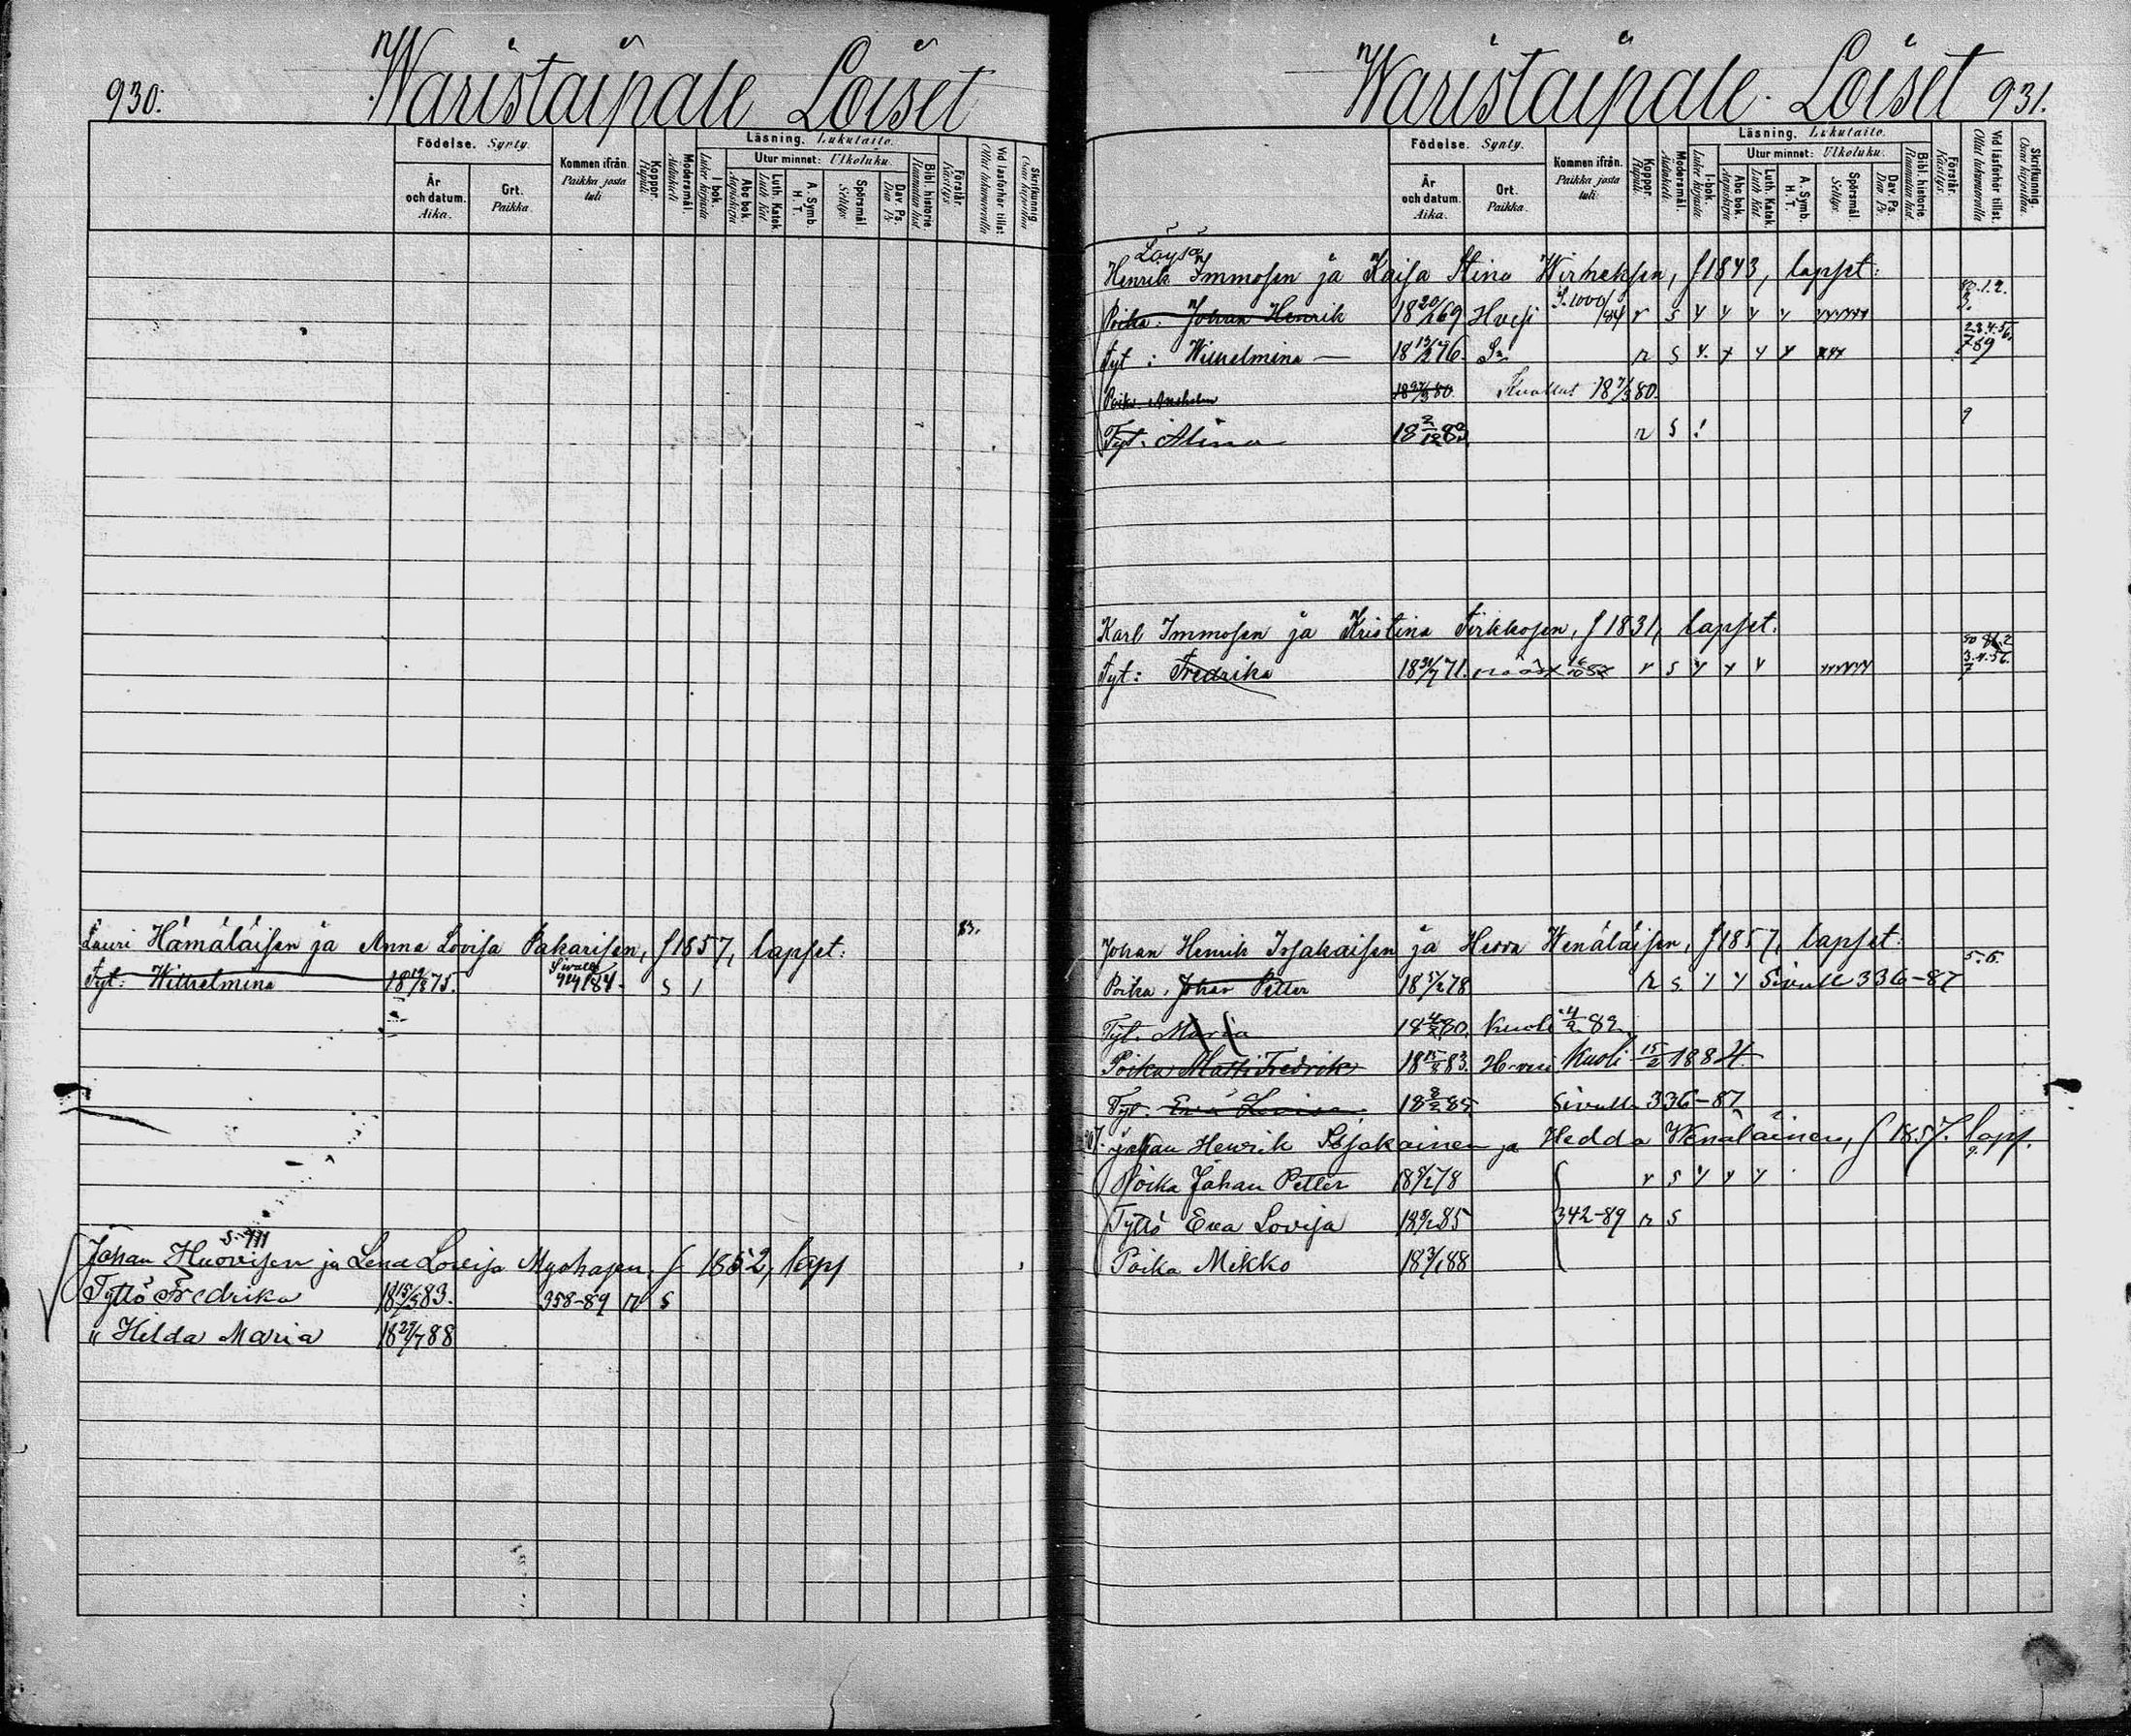 930.
Waristaipale Loiset
Födelse. Synty.
År och datum. Aika.
Ort. Paikka.
Kommen ifrån. Paikka josta tuli
Koppor. Rupuli.
Modersmål. Äidinkieli
Läsning. Lukutaito.
I bok. Lukee kirjasta
Utur minnet: Ulkoluku.
Abc bok. Aapiskirja
Luth. Katek. Luth. Kat.
A. Symb. H. T.
Spörsmål. Selitys.
Dav. Ps. Dav. Ps.
Bibl. historie. Raamatun hist.
Förstår. Käsitys.
Vid läsförhör tillst. Ollut lukuvuorolla
Skrifkunnig. Osaa kirjoittaa
83.
Lauri Hämäläisen ja Anna Lovisa Pakarisen, f 1857, lapset:
Tyt: Wilhelmina 75. Sivulle 84. S
S. 411
Johan Huovisen ja Lena Lovisa Myohasen, f 1852, laps
Tyttö Fredrika 18 15/3 83. 358-89 r S
" Hilda Maria 18 27/7 88
Waristaipale Loiset 931.
Födelse. Synty.
År och datum. Aika.
Ort. Paikka.
Kommen ifrån. Paikka josta tuli.
Koppor. Rupuli.
Modersmål. Äidinkieli.
Läsning. Lukutaito.
I bok. Lukee kirjasta.
Utur minnet: Ulkoluku.
Abc bok. Aapiskirja.
Luth. Katek. Luth. Kat.
A. Symb. H. T.
Spörsmål. Selitys.
Dav. Ps. Dav. Ps.
Bibl. historie. Raamatun hist.
Förstår. Käsitys.
Vid läsförhör tillst. Ollut lukuvuorolla
Skrifkunnig. Osaa kirjoittaa.
Löysä
Henrik Immosen ja Kaisa Stina Wirheksen, f 1843, lapset:
Poika: Johan Henrik 69 S. 1000/84 r S
Tyt: Wilhelmina 76. r S
Poika Anshelm 80. Kuollut 18 80.
Tyt. Alina 18 2/12 83 r S
Karl Immosen ja Kristina Tirkkosen, f 1831, lapset.
Tyt: Fredrika 71. r S
Johan Henrik Issakaisen ja Heova Wenäläisen, f 1857, lapset:
5.6.
Poika, Johan Petter 78 r S. Sivulle 336-87
Tyt. Maria 80. Kuoli 4/2 82
Poika Matti Fredrik 83. Kuoli 15/2 1884.
Tyt. Eva Lovisa 85 Sivulle 336-87
Johan Henrik Issakainen ja Hedda Wenäläinen, f 1857. laps.
Poika Johan Petter 78 r S
Tyttö Eva Lovisa 85 342-89 r S
Poika Mikko 88